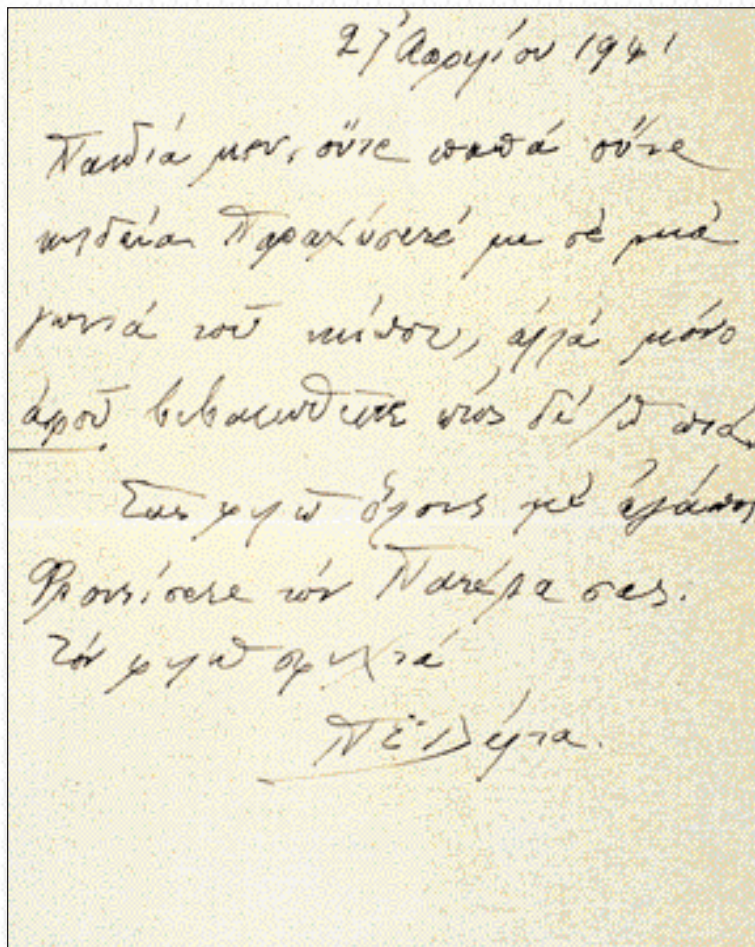 27 Απριλίου 1941
Παιδιά μου, οὔτε παπά οὔτε
κηδεία. Παραχώσετέ με σὲ μιὰ
γωνιά τοῦ κήπου, ἀλλά μόνο
ἀφοῦ βεβαιωθῆτε πώς δέ ζῶ πιά.
Σας φιλῶ ὅλους μὲ ἀγάπη
Φροντίσετε τόν Πατέρα σας.
τόν φιλῶ σφιχτά
Π Σ Δέλτα.